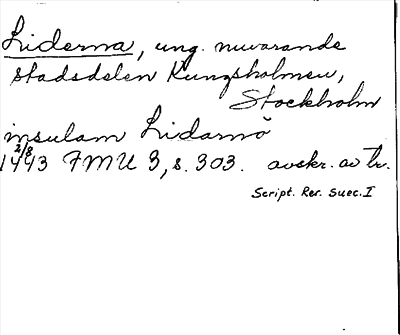 Liderna, ung. nuvarande
stadsdelen Kungsholmen,
Stockholm
insulam Lidarnö
2/8
1443 FMU 3, s. 303. avskr. av tr.
Script. Rer. Suec. I